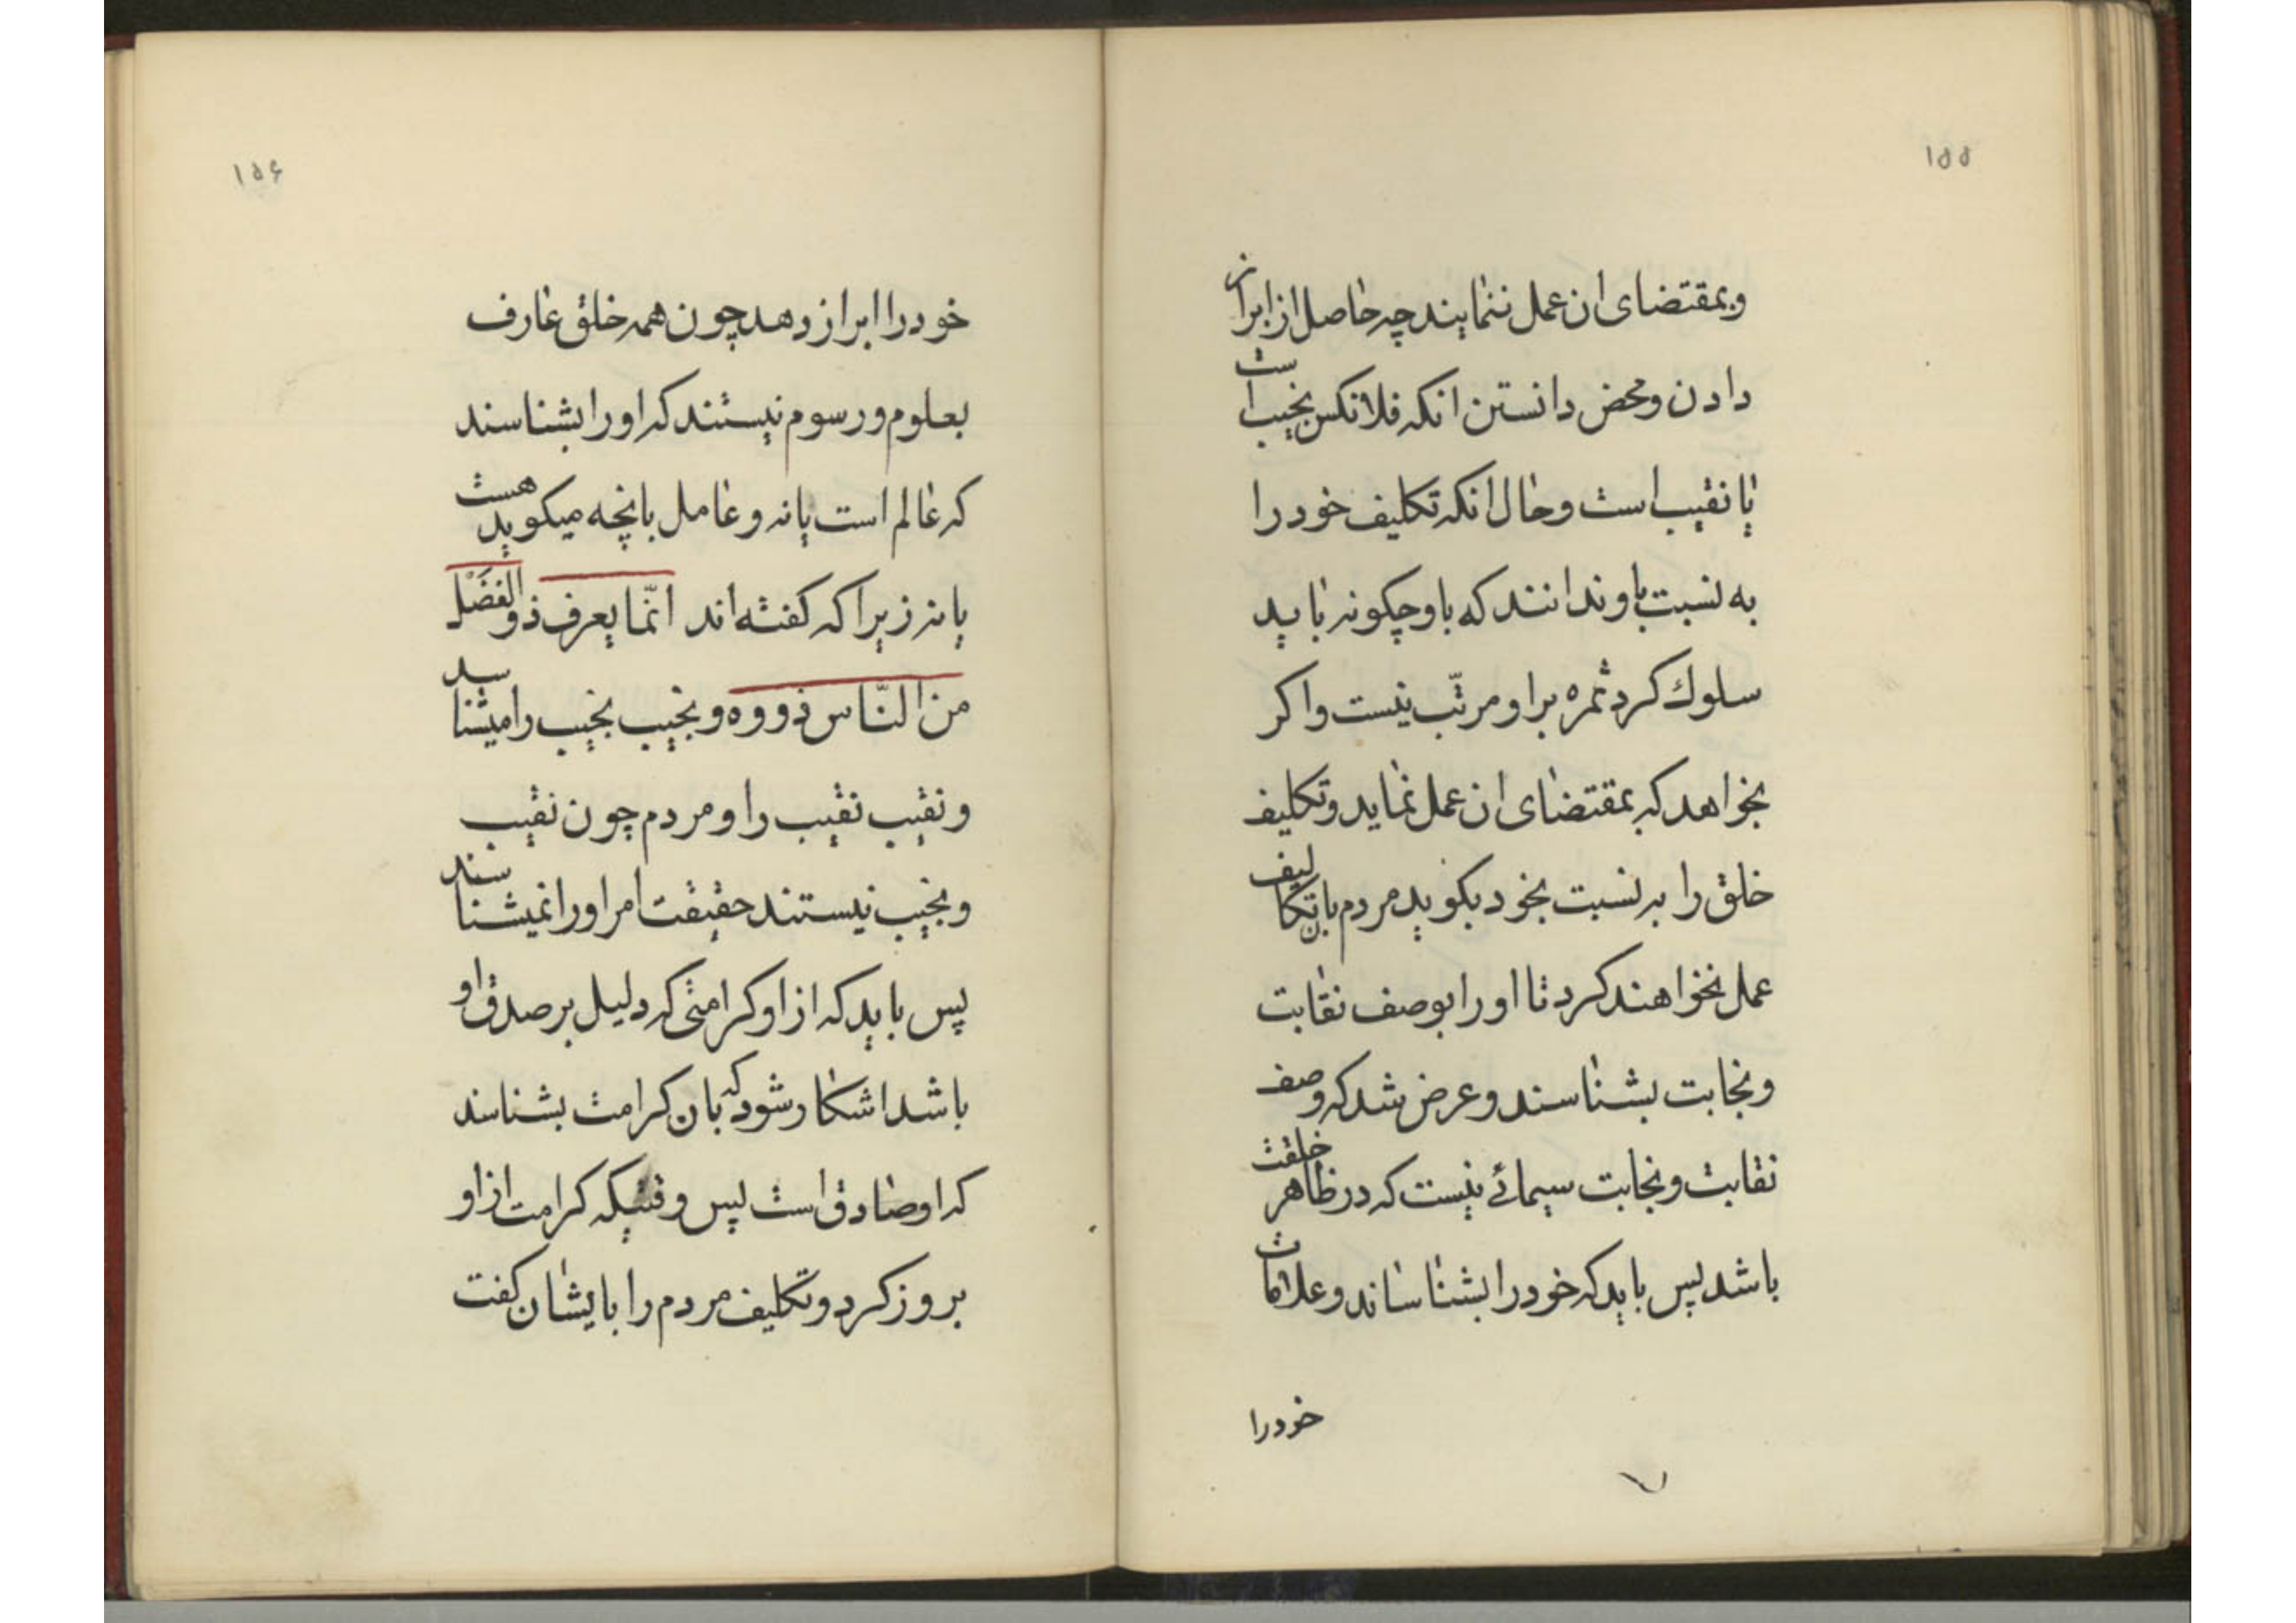 ۱۵۵
وبمقتضای ان عمل ننمایند چه حاصل از ابراز
دادن و محض دانستن انکه فلانکس نجیب است
یا نقیب است و حال انکه تکلیف خود را
به نسبت باو ندانند که باو چکونه باید
سلوك کرد ثمره براو مرتّب نیست و اکر
بخواهد که بمقتضای ان عمل نماید و تکلیف
خلق را به نسبت بخود بکوید مردم بان تکالیف
عمل نخواهند کرد تا او را بوصف نقابت
و نجابت بشناسند و عرض شد که وصف
نقابت و نجابت سیمائے نیست که در ظاهر خلقت
باشد پس باید که خود را بشناساند و علامات
خود را
۱۵۶
خود را ابراز دهد چون همه خلق عارف
بعلوم و رسوم نیستند که او را بشناسند
که عالم است یا نه و عامل بانچه میکوید هست
یا نه زیرا که کفته اند انّما یعرف ذو الفضل
من النّاس ذووه و نجیب نجیب را میشناسد
و نقیب نقیب را و مردم چون نقیب
و نجیب نیستند حقیقت امر او را نمیشناسند
پس باید که از او کرامتی که دلیل بر صدق او
باشد اشکار شود که بان کرامت بشناسند
که او صادق است پس وقتیکه کرامت از او
بروز کرد و تکلیف مردم را بایشان کفت